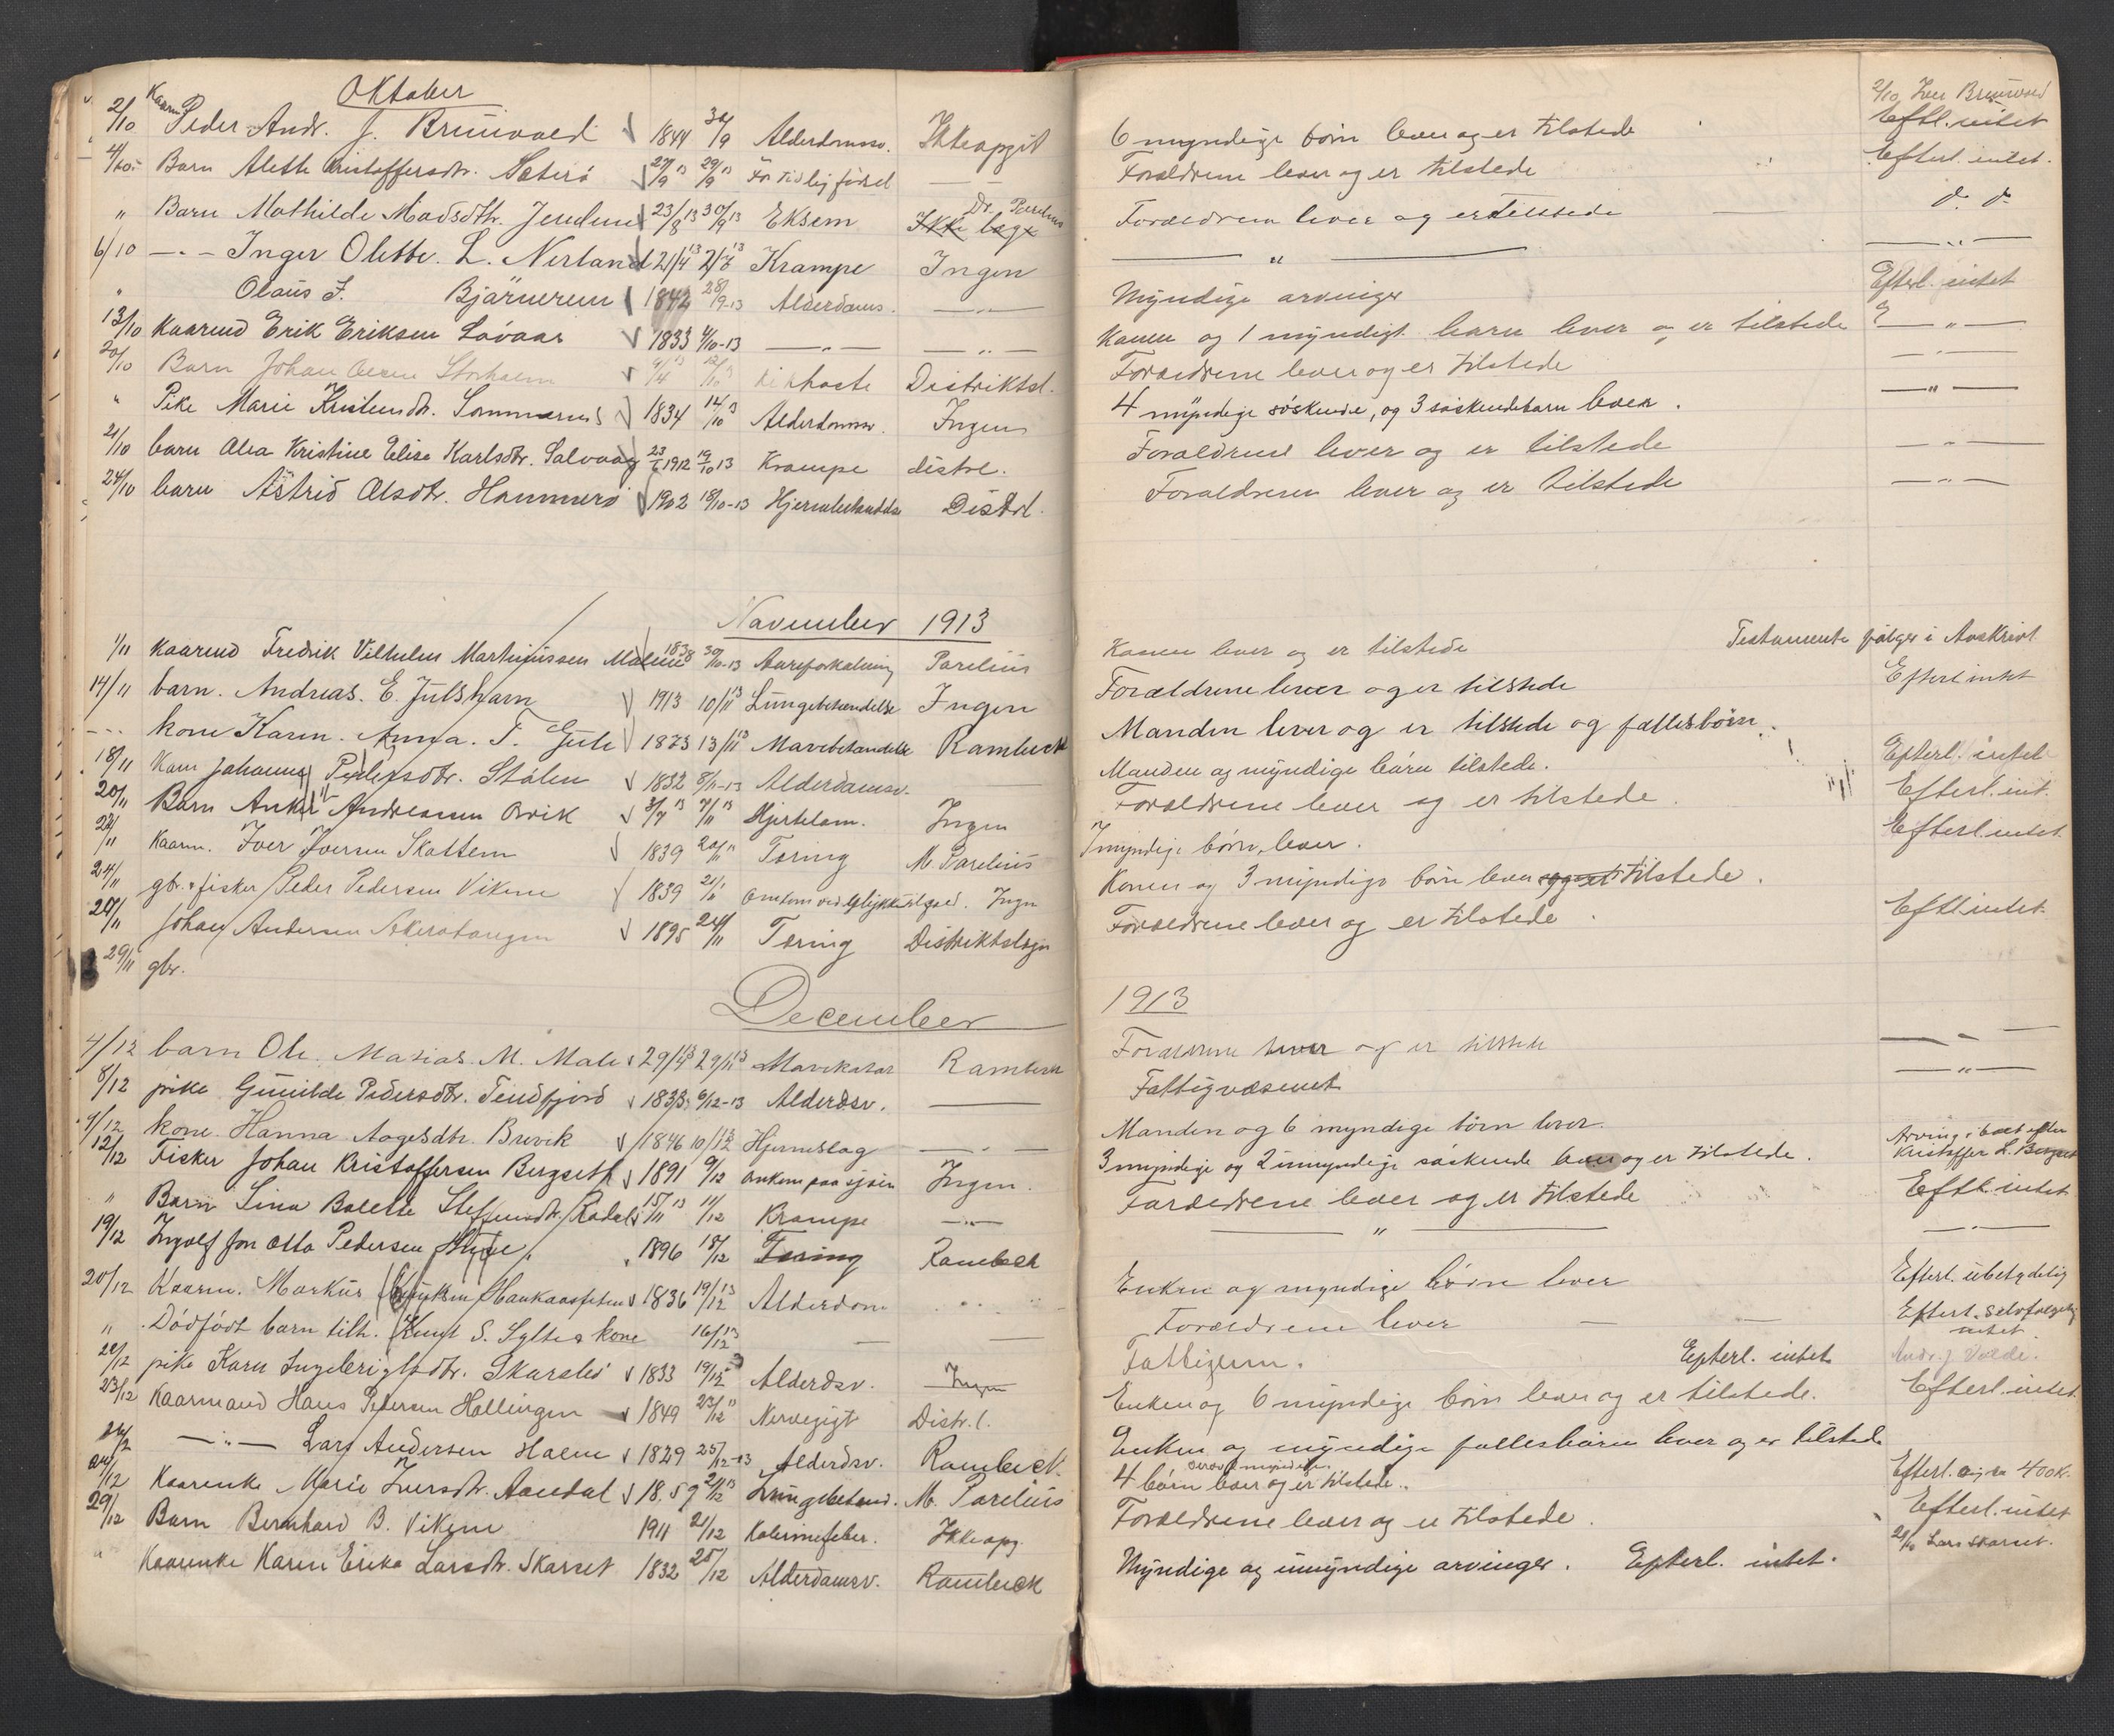 Oktober
2/10 Kaarm. Peder Andr. J. Brunvold 1844 30/9 Alderdomsv. Ikke opgit 6 myndige børn lever og er tilstede Eftl. intet
4/10 Barn Alette Kristoffersdtr. Sæterø 27/9 13 29/9 13 For tidlig fødsel — Forældrene lever og er tilstede Efterl. intet.
" Barn Mathilde Madsdtr. Jendem 23/8 13 30/9 13 Eksem Ikke læge Dr. Parelius Forældrene lever og er tilstede d. d.
6/10 — " — Inger Olette L. Nerland 21/4 13 Krampe Ingen — " — — " —
" Olaus J. Bjärnerem 1842 28/9-13 Alderdoms. — " — Myndige arvinger Efterl. intet
13/10 Kaarmd Erik Eriksen Løvaas 1833 4/10-13 — " — — " — Konen og 1 myndigt barn lever og er tilstede — " —
20/10 Barn Johan Storholm Kikhoste Distriktsl. Forældrene lever og er tilstede — " —
" Pike Marie Kristendtr. Sommernes 1834 14/10 13 Alderdomsv. Ingen 4 myndige søskende, og 3 søskendebarn lever. — " —
21/10 barn Alea Kristine Elise Karlsdtr. Salvaag 1912 19/10 13 Krampe distrl. Forældrene lever og er tilstede — " —
24/10 barn Astrid Olsdtr. Hammerø 1902 18/10-13 Hjernebetændelse Distrl. Forældrene lever og er tilstede — " —
November 1913
1/11 Kaarmd Fredrik Vilhelm Martinussen Malme 1838 30/10-13 Aareforkalkning Parelius Konen lever og er tilstede Testamente følger i Avskrivt
14/11 barn. Andreas. E. Julshavn 1913 10/11 13 Lungebetændelse Ingen Forældrene lever og er tilstede Efterl intet
— " — kone Karen. Anna. T. Gule 1873 13/11 13 Mavebetændelse Rambeck Manden lever og er tilstede og fællesbörn.
18/11 Kone Johanna Pedersdtr. Stålen 1832 8/11-13 Alderdomsv. — Manden og myndige bårn tilstede. Efterl. intet
20/11 Barn Anker Andreassen Orvik 3/7 13 7/11 13 Hjertelam. Ingen Forældrene lever og er tilstede. Efterl. int.
22/11 Kaarm. Iver Iversen Skottem 1839 20/11 Tæring M. Parelius 7 myndige børn lever. Efterl. intet
24/11 gbr. & fisker Peder Pedersen Vikene 1839 Omkom ved ulykkestilfæld. Ingen Konen og 3 myndige børn lever og er tilstede.
24/11 Johan Andersen Akerstangen 1895 24/11 Tæring Distriktslægen Forældrene lever og er tilstede. Eftl. intet
29/11 gbr.
December 1913
4/12 barn Ole. Masias. M. Male 29/4 13 29/11 13 Mavekatar Rambeck Forældrene lever og er tilstede — " —
8/12 pike Gunilde Pedersdtr. Tendfjord 1833 6/12-13 Alderdsv. — Fattigvæsenet — " —
9/12 kone. Hanna Aagesdtr. Brevik 1846 10/12 Hjerneslag — " — Manden og 6 myndige børn lever.
12/12 Fisker Johan Kristoffersen Bergseth 1891 9/12 omkom paa sjøen Ingen. 3 myndige og 2 umyndige søskende lever og er tilstede. Arving i boet efter Kristoffer L. Bergset
" Barn Lina Bolette Steffensdtr. Rødal 15/11 13 11/12 Krampe — " — Forældrene lever og er tilstede Eftl. intet
19/12 Ingolf Jon Otto Pedersen 1896 18/12 Tæring Rambeck — " — — " —
20/12 Kaarm. Markus Knutsen Haukaasfeten 1836 19/12 13 Alderdom Enken og myndige børn lever Efterl. ubetydelig
" Dødfødt barn tilh. Knut S. Sylte & kone 16/12 13 — — Forældrene lever — — Efterl. selvfølgelig intet
22/12 pike Karn Ingebrigtsdtr. Skarslid 1833 19/12 Alderdsv. Ingen Fattiglem. Efterl. intet
23/12 Kaarmand Hans Pedersen Hollingen 1849 23/12 Nervegigt Distr. l. Enken og 6 myndige børn lever og er tilstede. Efterl. intet
— " — Lars Andersen Holm 1829 25/12-13 Alderdsv. Rambeck. Enken og myndige fællesbörn lever og er tilstede
Kaarenke Marie Iversdtr. Aandal 1859 Lungebetænd. M. Parelius 4 børn lever og er tilstede. Efterl. 400 k.
29/12 Barn Bernhard B. Vikene 1911 21/12 Kaldfeber. Ikke opg. Forældrene lever og er tilstede. Efterl. intet
" Kaarenke Karen Erika Larsdtr. Skarset 1832 25/12 Alderdomsv. Rambeck Myndige og umyndige arvinger. Efterl. intet. Lars Skarset.